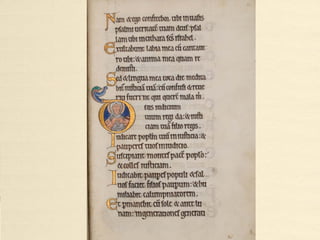 Nam & ego confitebor tibi in uasis
psalmi ueritatem tuam deus: psal
lam tibi in cithara scs israhel.
Exultabunt labia mea cū cantaue
ro tibi: & anima mea quam re
demisti.
Sed & lingua mea tota die medita
bit iusticiā tuā: cū confusi & reue
riti fuerint qui querunt mala m.
Deus iudicium
tuum regi da: & iusti
ciam tuā filio regis.
Iudicare populū tuū in iusticia: &
pauperes tuos in iudicio.
Suscipiant montes pacē populo:
& colles iusticiam.
Iudicabit pauperes populi & sal
uos faciet filios pauperum: & hu
miliabit calumpniatorem.
Et pmanebit cū sole & ante lu
nam: in generatione & generati